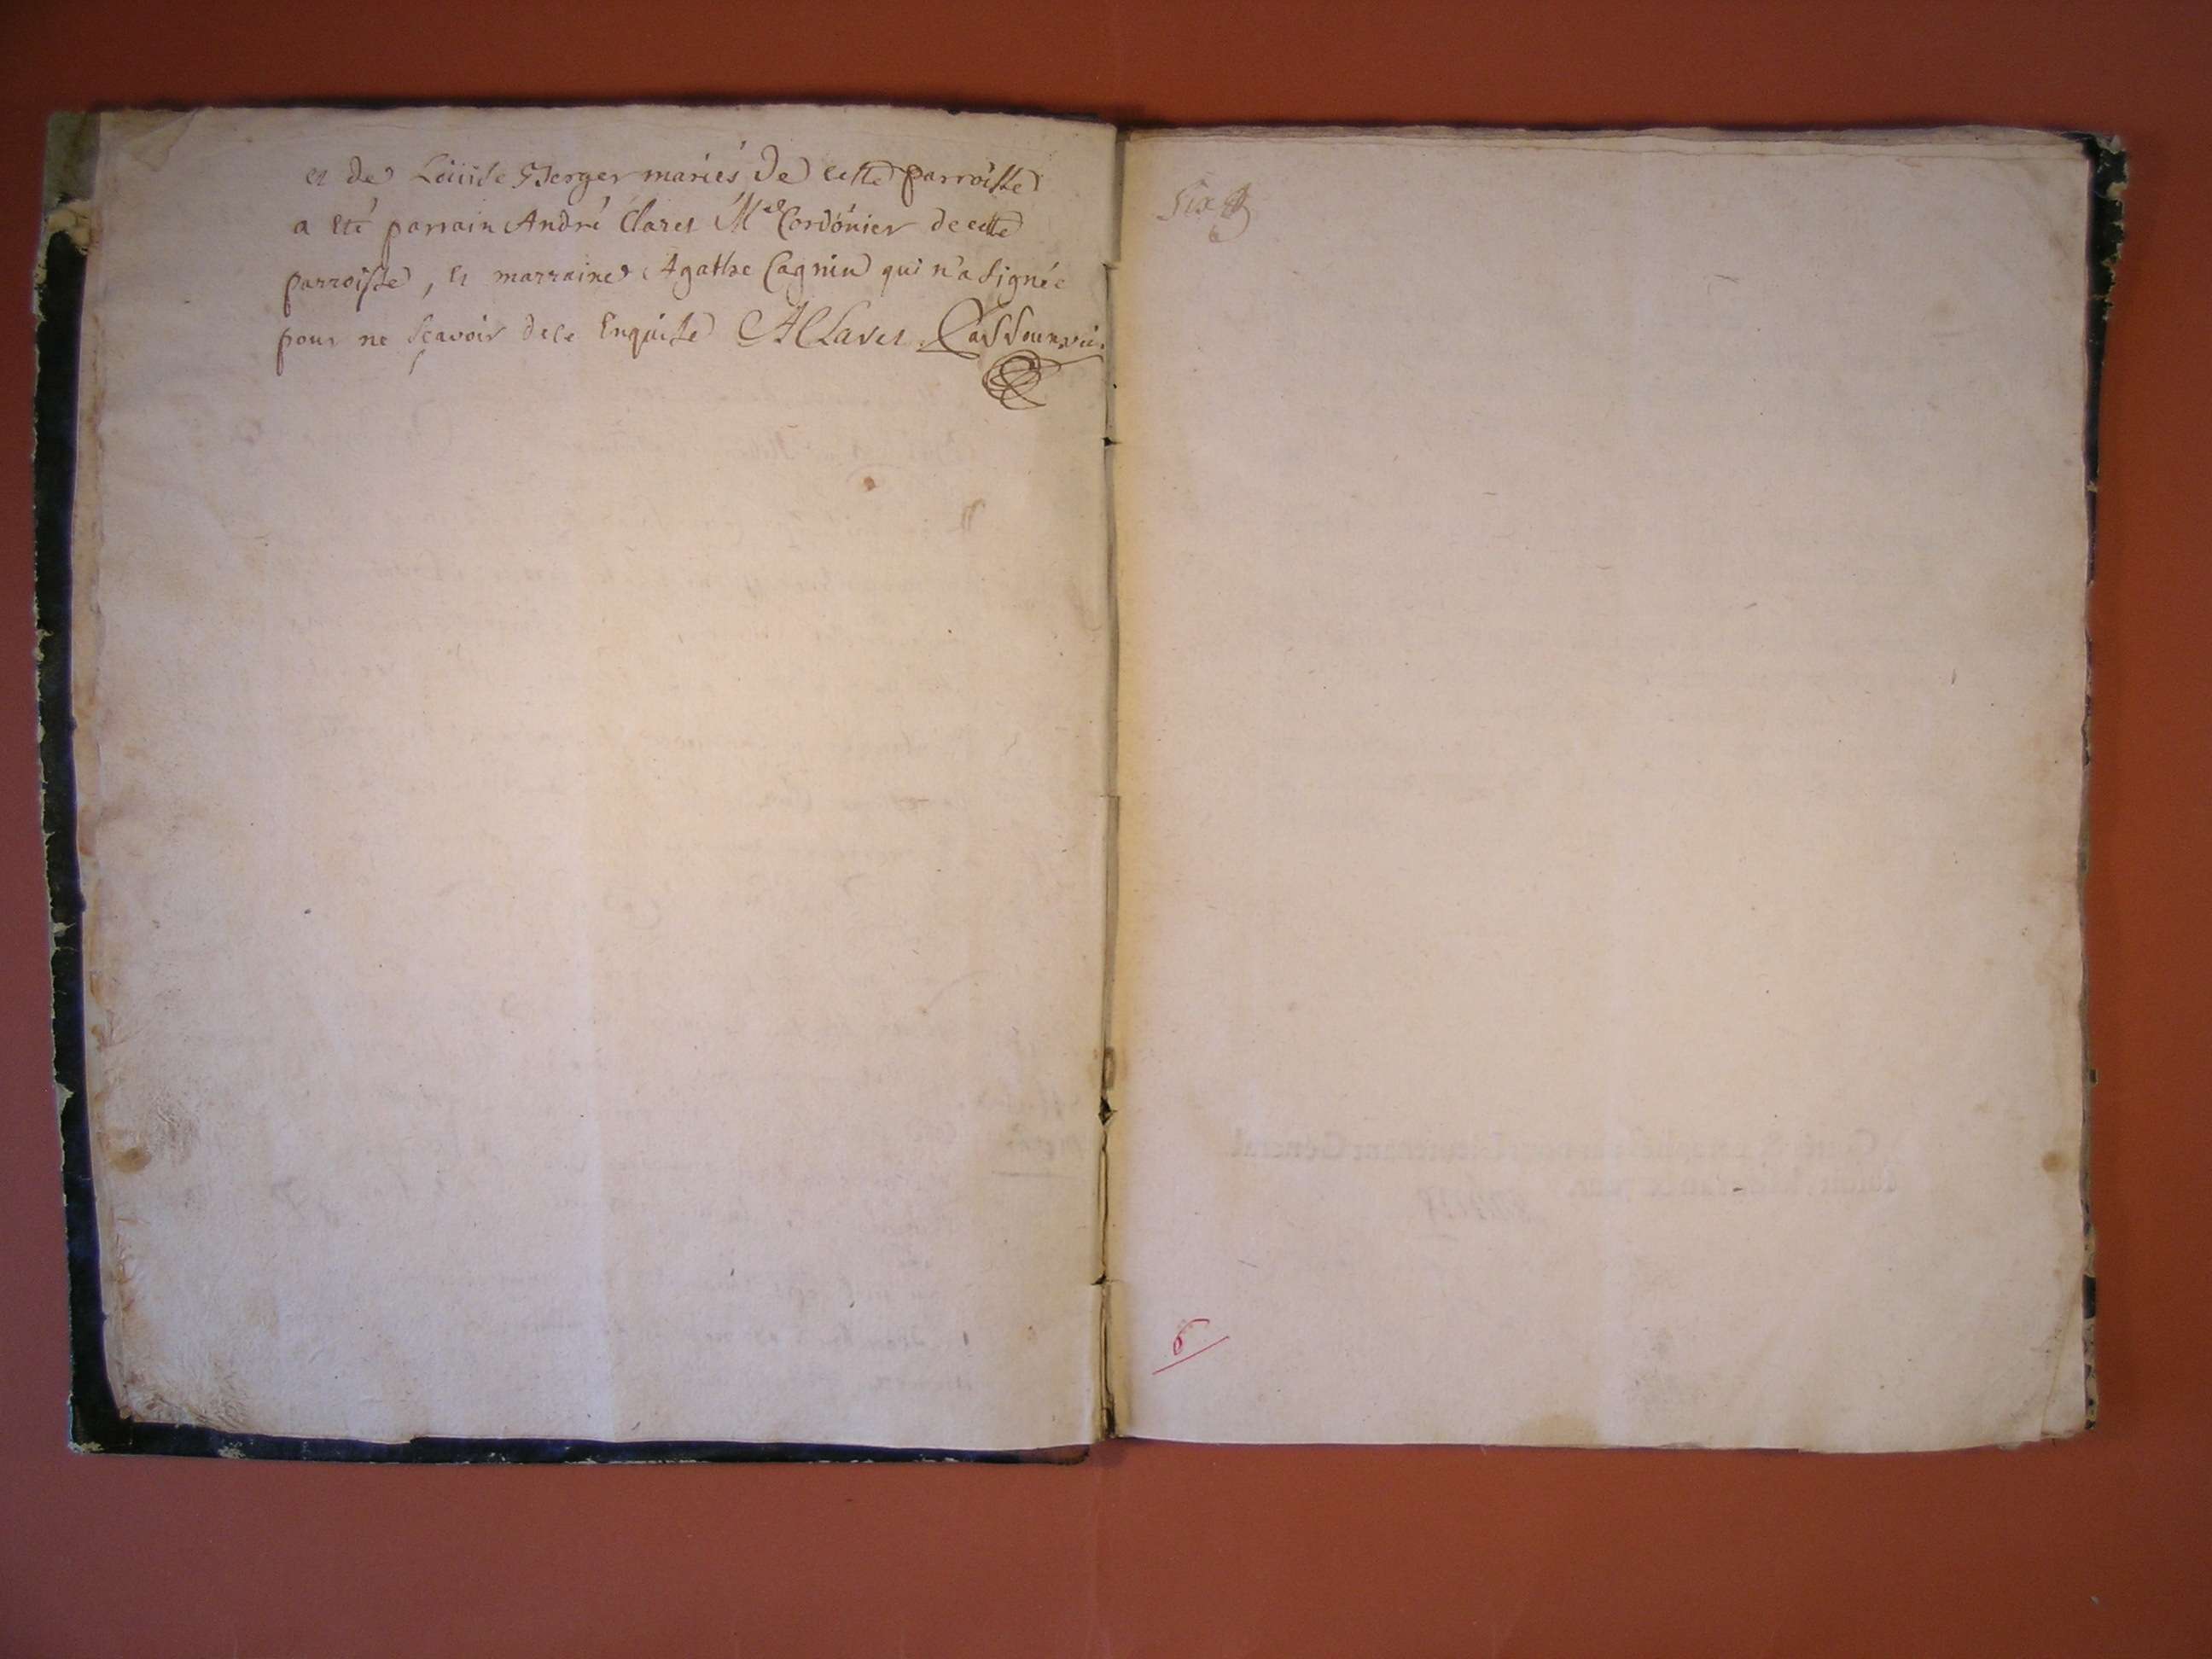 et de Loüise Berger mariés de cette parroisse
a été parrain André Claret M.e Cordónier de cette
parroisse, et marraine Agathe Cagnin qui n'a signée
pour ne sçavoir de ce Enquise AClaret
Six
6
6